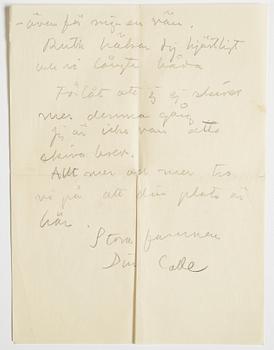 - även för mig en vän.
Ruth hälsar dig hjärtligt
och vi längta båda
Förlåt att jag ej skriver
mer denna gång
jag är icke van att
skriva brev.
Allt mer och mer tro
vi på att din plats är
här.
Stora famnen
Din Calle